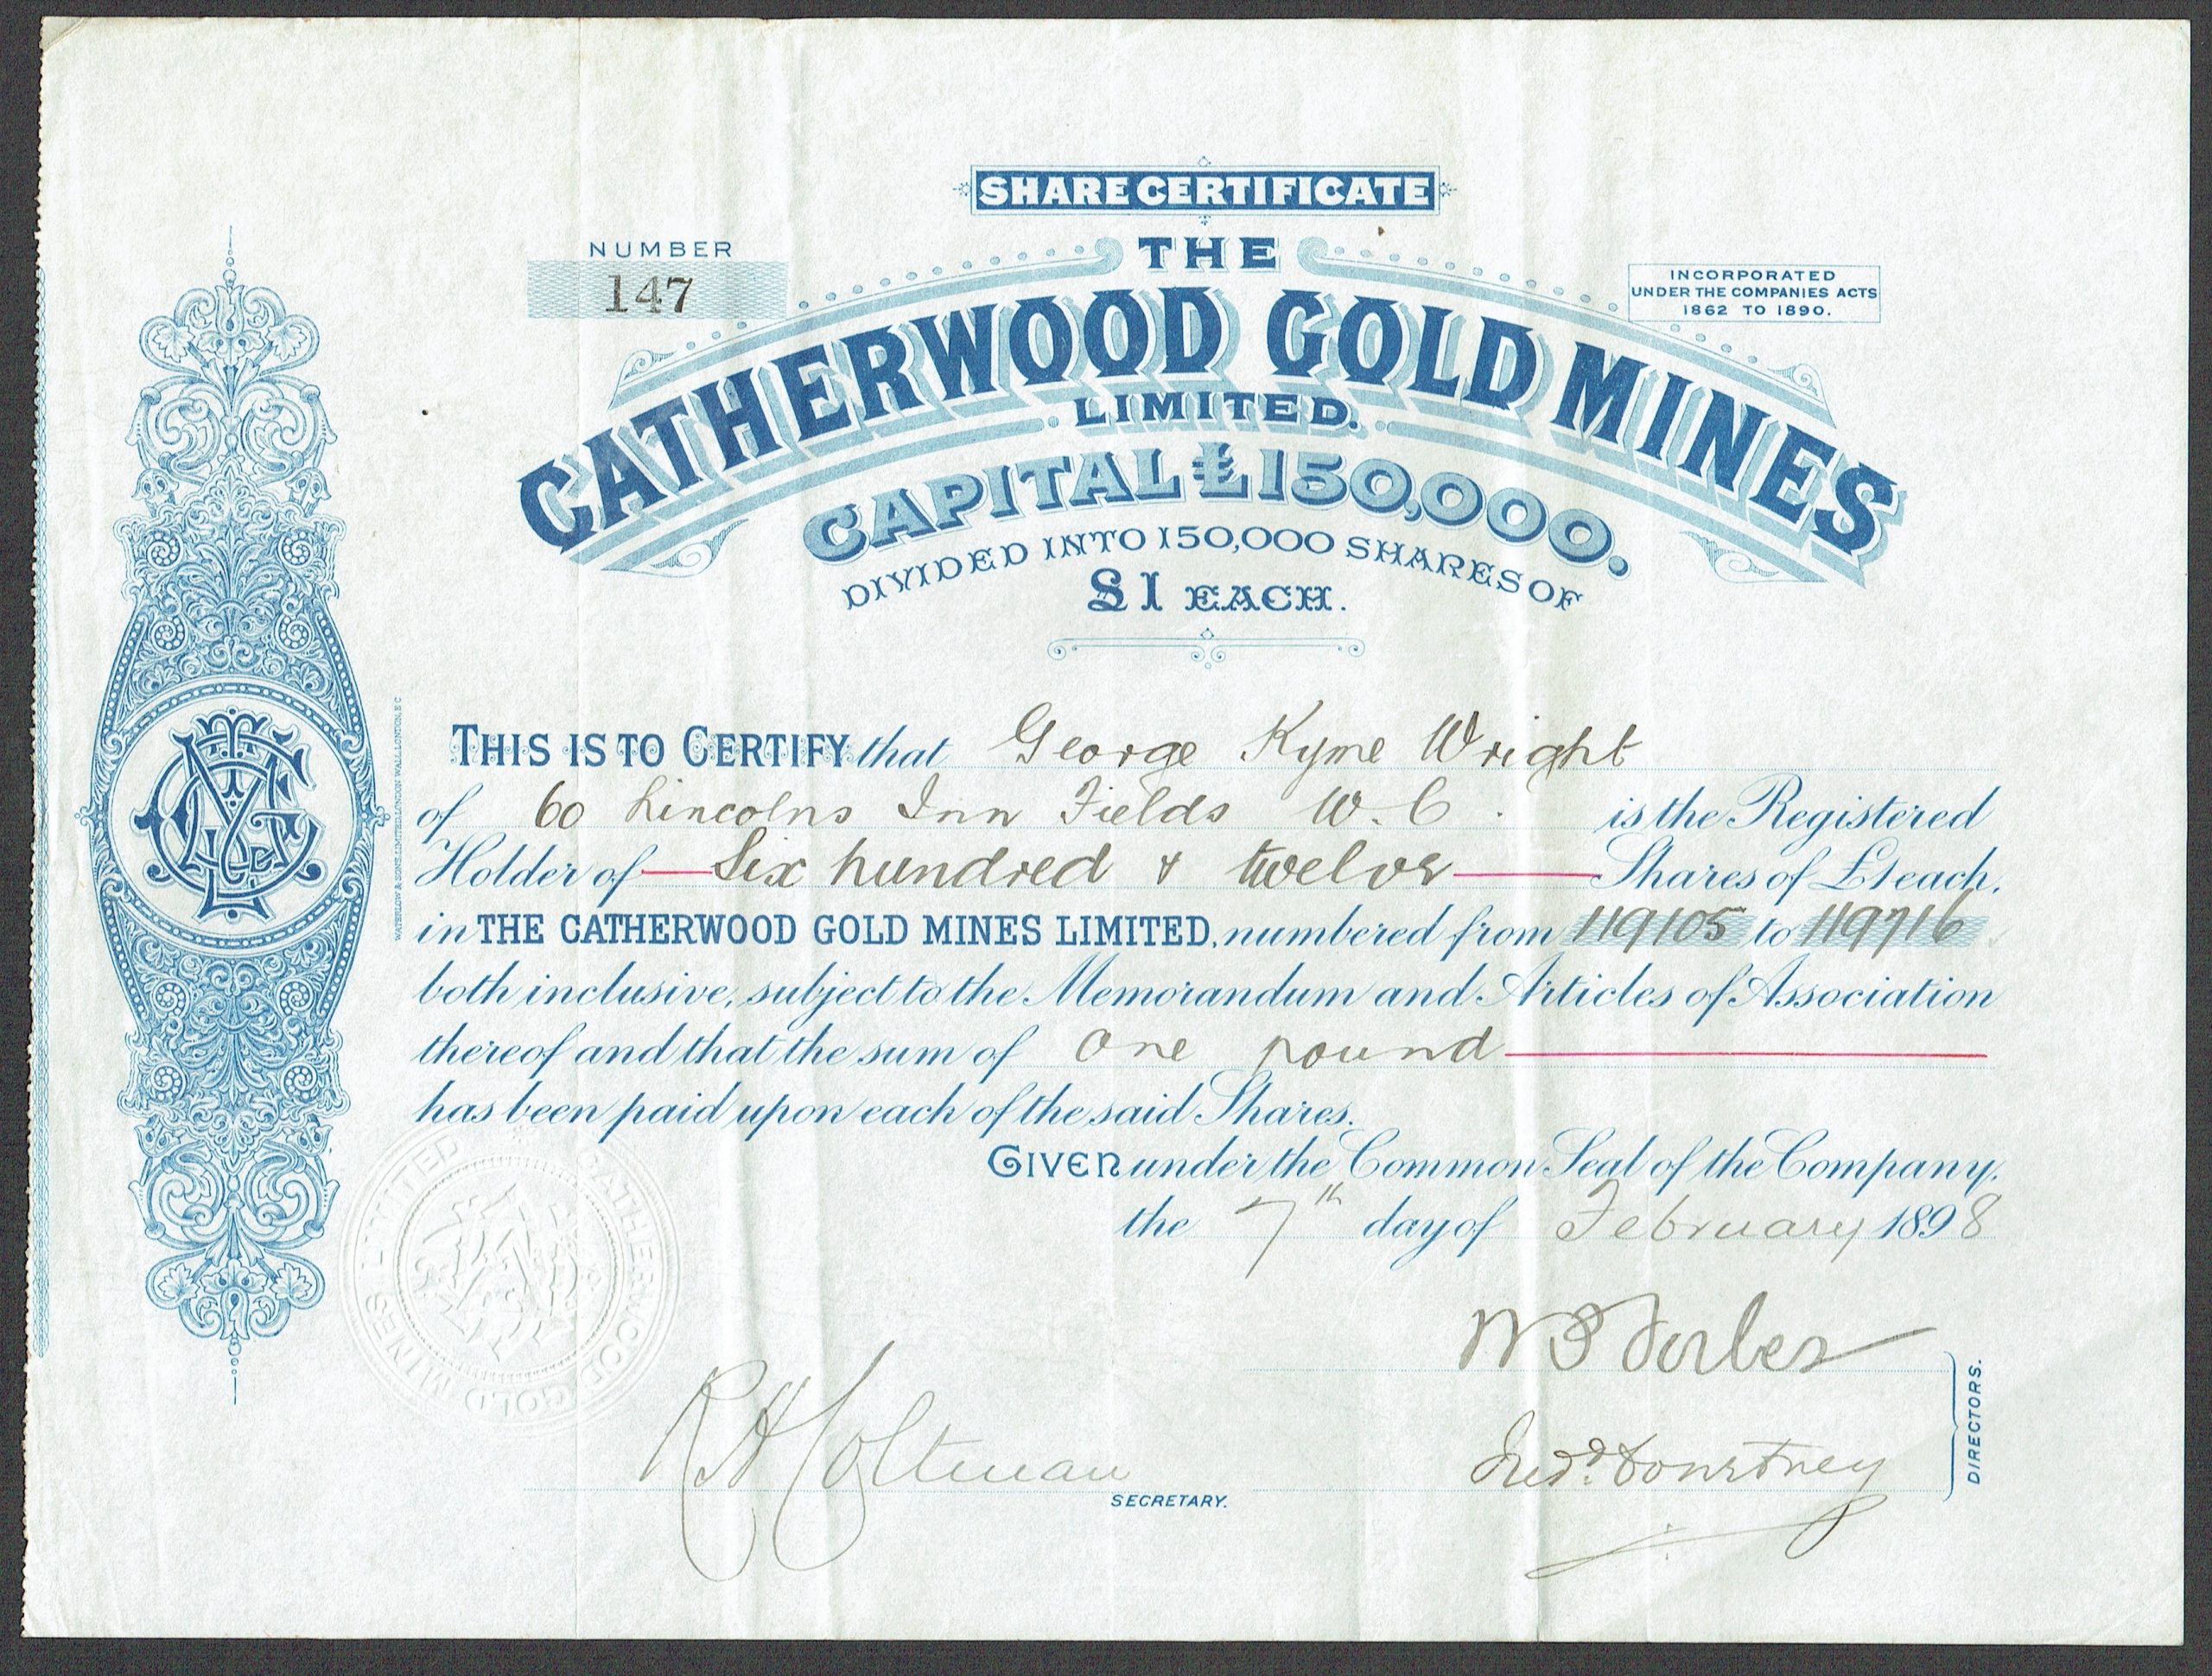 SHARE CERTIFICATE
NUMBER
147
INCORPORATED
UNDER THE COMPANIES ACTS
1862 TO 1890.
THE
CATHERWOOD GOLD MINES
LIMITED.
CAPITAL £150,000.
DIVIDED INTO 150,000 SHARES OF
£1 EACH.
THIS IS TO CERTIFY that George Kyme Wright
of 60 Lincolns Inn Fields W.C. is the Registered
Holder of Six hundred & twelve Shares of £1 each,
in THE CATHERWOOD GOLD MINES LIMITED, numbered from 119105 to 119716
both inclusive, subject to the Memorandum and Articles of Association
thereof and that the sum of One pound
has been paid upon each of the said Shares.
GIVEN under the Common Seal of the Company,
the 7th day of February 1898
W S Forbes
Fredd. Courtney
DIRECTORS.
R H Coltman
SECRETARY.
WATERLOW & SONS LIMITED, LONDON WALL, LONDON, E C
CATHERWOOD GOLD MINES LIMITED